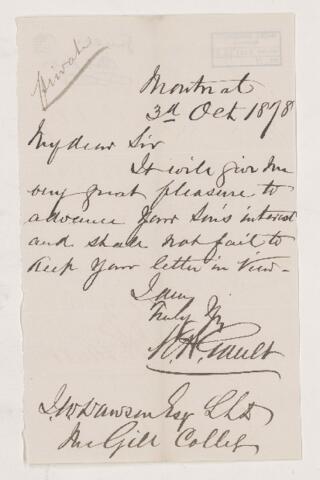 Private
Montreal
3rd Oct 1878
My dear Sir
It will give me
very great pleasure to
advance your Son's interest
and shall not fail to
keep your letter in view—
I am
Truly Yrs
M. H. Gault
J. W. Dawson Esq LLD
McGill College